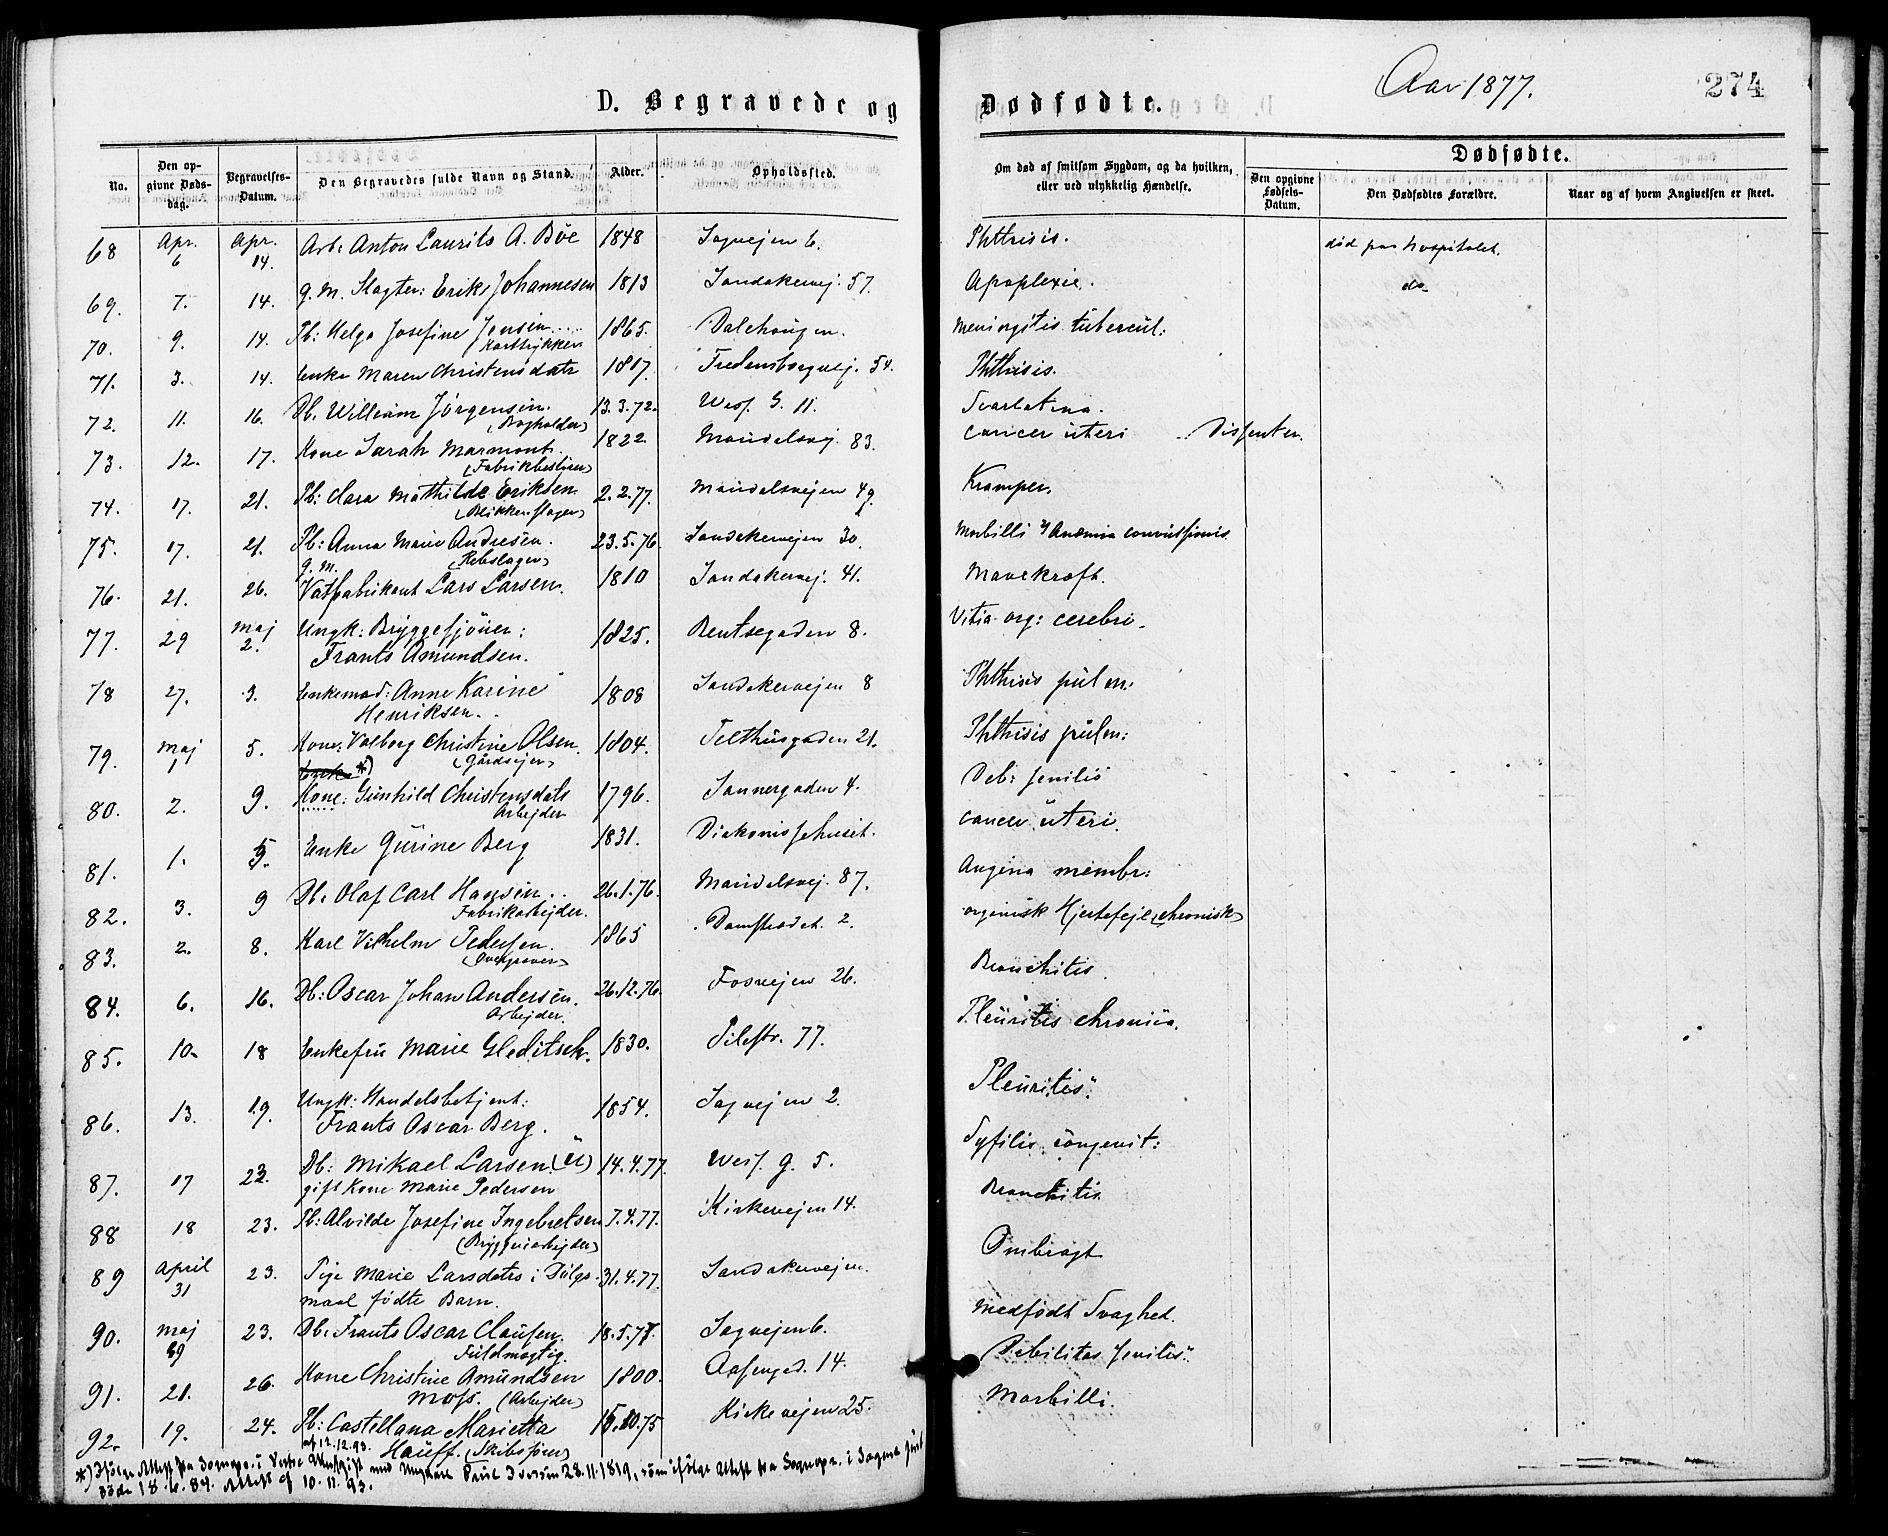 Aar 1877.
274
D. Begravede og Dødfødte.
No.
Den opgivne Dødsdag.
Begravelses-Datum.
Den Begravedes fulde Navn og Stand.
Alder.
Opholdssted.
Om død af smitsom Sygdom, og da hvilken, eller ved ulykkelig Hændelse.
Dødfødte.
Den opgivne Fødsels-Datum.
Den Dødfødtes Forældre.
Naar og af hvem Angivelsen er skeet.
68 Apr. 6 Apr. 14. Arb: Anton Laurits A. Böe 1848 Sagvejen 6. Phthisis. død paa Hospitalet.
69. 7. 14. g. M. Slagter: Erik Johannesen 1813 Sandakervej. 57. Apoplexie. do
70. 9. 14. Pb: Helga Josefine Jensen 1865. Dalehaugen. Meningitis tubercul:
71. 3. 14. Enke Maren Christensdatr 1817. Fredensborgvej. 54. Phthisis.
72. 11. 16. Db. William Jörgensen. (Bogholder) 13.3.72. Wess. G. 11. Scarlatina.
73. 12. 17. Kone Sarah Marmont (Fabrikbestyrer) 1822 Maridalsvej. 83. Cancer uteri Dissenter.
74. 17. 21. Pb: Clara Mathilde Eriksen (Blikkenslager) 2.2.77. Maridalsvejen 49. Kramper.
75. 17. 21. Pb: Anna Marie Andresen. (Rebslager) 23.5.76. Sandakervejen 30. Morbilli
76. 21. 26. g. M. Vatfabrikant Lars Larsen. 1810 Sandakervej. 41. Mavekræft.
77. 29 Maj 2. Ungk: Bryggesjouer: Frants Amundsen. 1825. Bentsegaden 8. Vitia org: cerebri.
78 27. 3. Enkemad: Anne Karine Henriksen. 1808 Sandakervejen 8 Phthisis pulm:
79. Maj 1 5. Kone: Valborg Christine Olsen. (Gårdsejer) 1804. Telthusgaden 21. Phthisis pulm:
80. 2. 9. Enke *) Kone: Gunhild Christensdatr Arbejder 1796. Sannergaden 4. Deb: senilis
81. 1. 5. Enke Gurine Berg 1831. Diakonissehuset. Cancer uteri.
82. 3. 9 Db. Olaf Carl Hansen Fabrikarbejder. 26.1.76. Maridalsvej. 87. Angina membr:
83. 2. 8. Karl Vilhelm Pedersen. (Overgraver) 1865 Damstrædet. 2. organisk Hjertefejl (chronisk)
84. 6. 16. Db: Oscar Johan Andersen. Arbejder. 26.12.76. Fosvejen 26. Bronchitis.
85. 10. 18 Enkefru Marie Gleditsch. 1830. Pilestr. 77. Pleuritis chronica.
86. 13. 19. Ungk: Handelsbetjent: Frants Oscar Berg. 1854. Sagvejen 2. Pleuritis.
87. 17 22. Db: Mikael Larsen. (U) gift Kone Marie Pedersen 14.4.77. Wess. g. 5. Syfilis congenit:
88 18 23. Pb: Alvilde Josefine Ingebretsen (Bryggeriarbejder) 7.4.77. Kirkevejen 14. Bronchitis.
89 April 31 23. Pige Marie Larsdatrs i Dølgsmaal fødte Barn. 31.4.77. Sandakervejen. Ombragt
90. Maj 19 23. Db: Frants Oscar Clausen. Fuldmægtig. 18.5.77. Sagvejen 6. Medfødt Svaghed.
91. 21. 26. Kone Christine Amundsen Moss. (Arbejder) 1800. Aasenged. 14. Debilitas senilis.
92. 19. 24. Pb: Castellana Marietta Hauff. (Skibsfører) 15.10.75 Kirkevejen 25. Morbilli.
af 12.12.93.
*) Ifølge Attest fra Sognepr. i Vestre Aker gift med Iversen 28.11.1819, som ifølge Attest fra Sognepr. i
døde 18.6.84. Attest af 10.11.93.